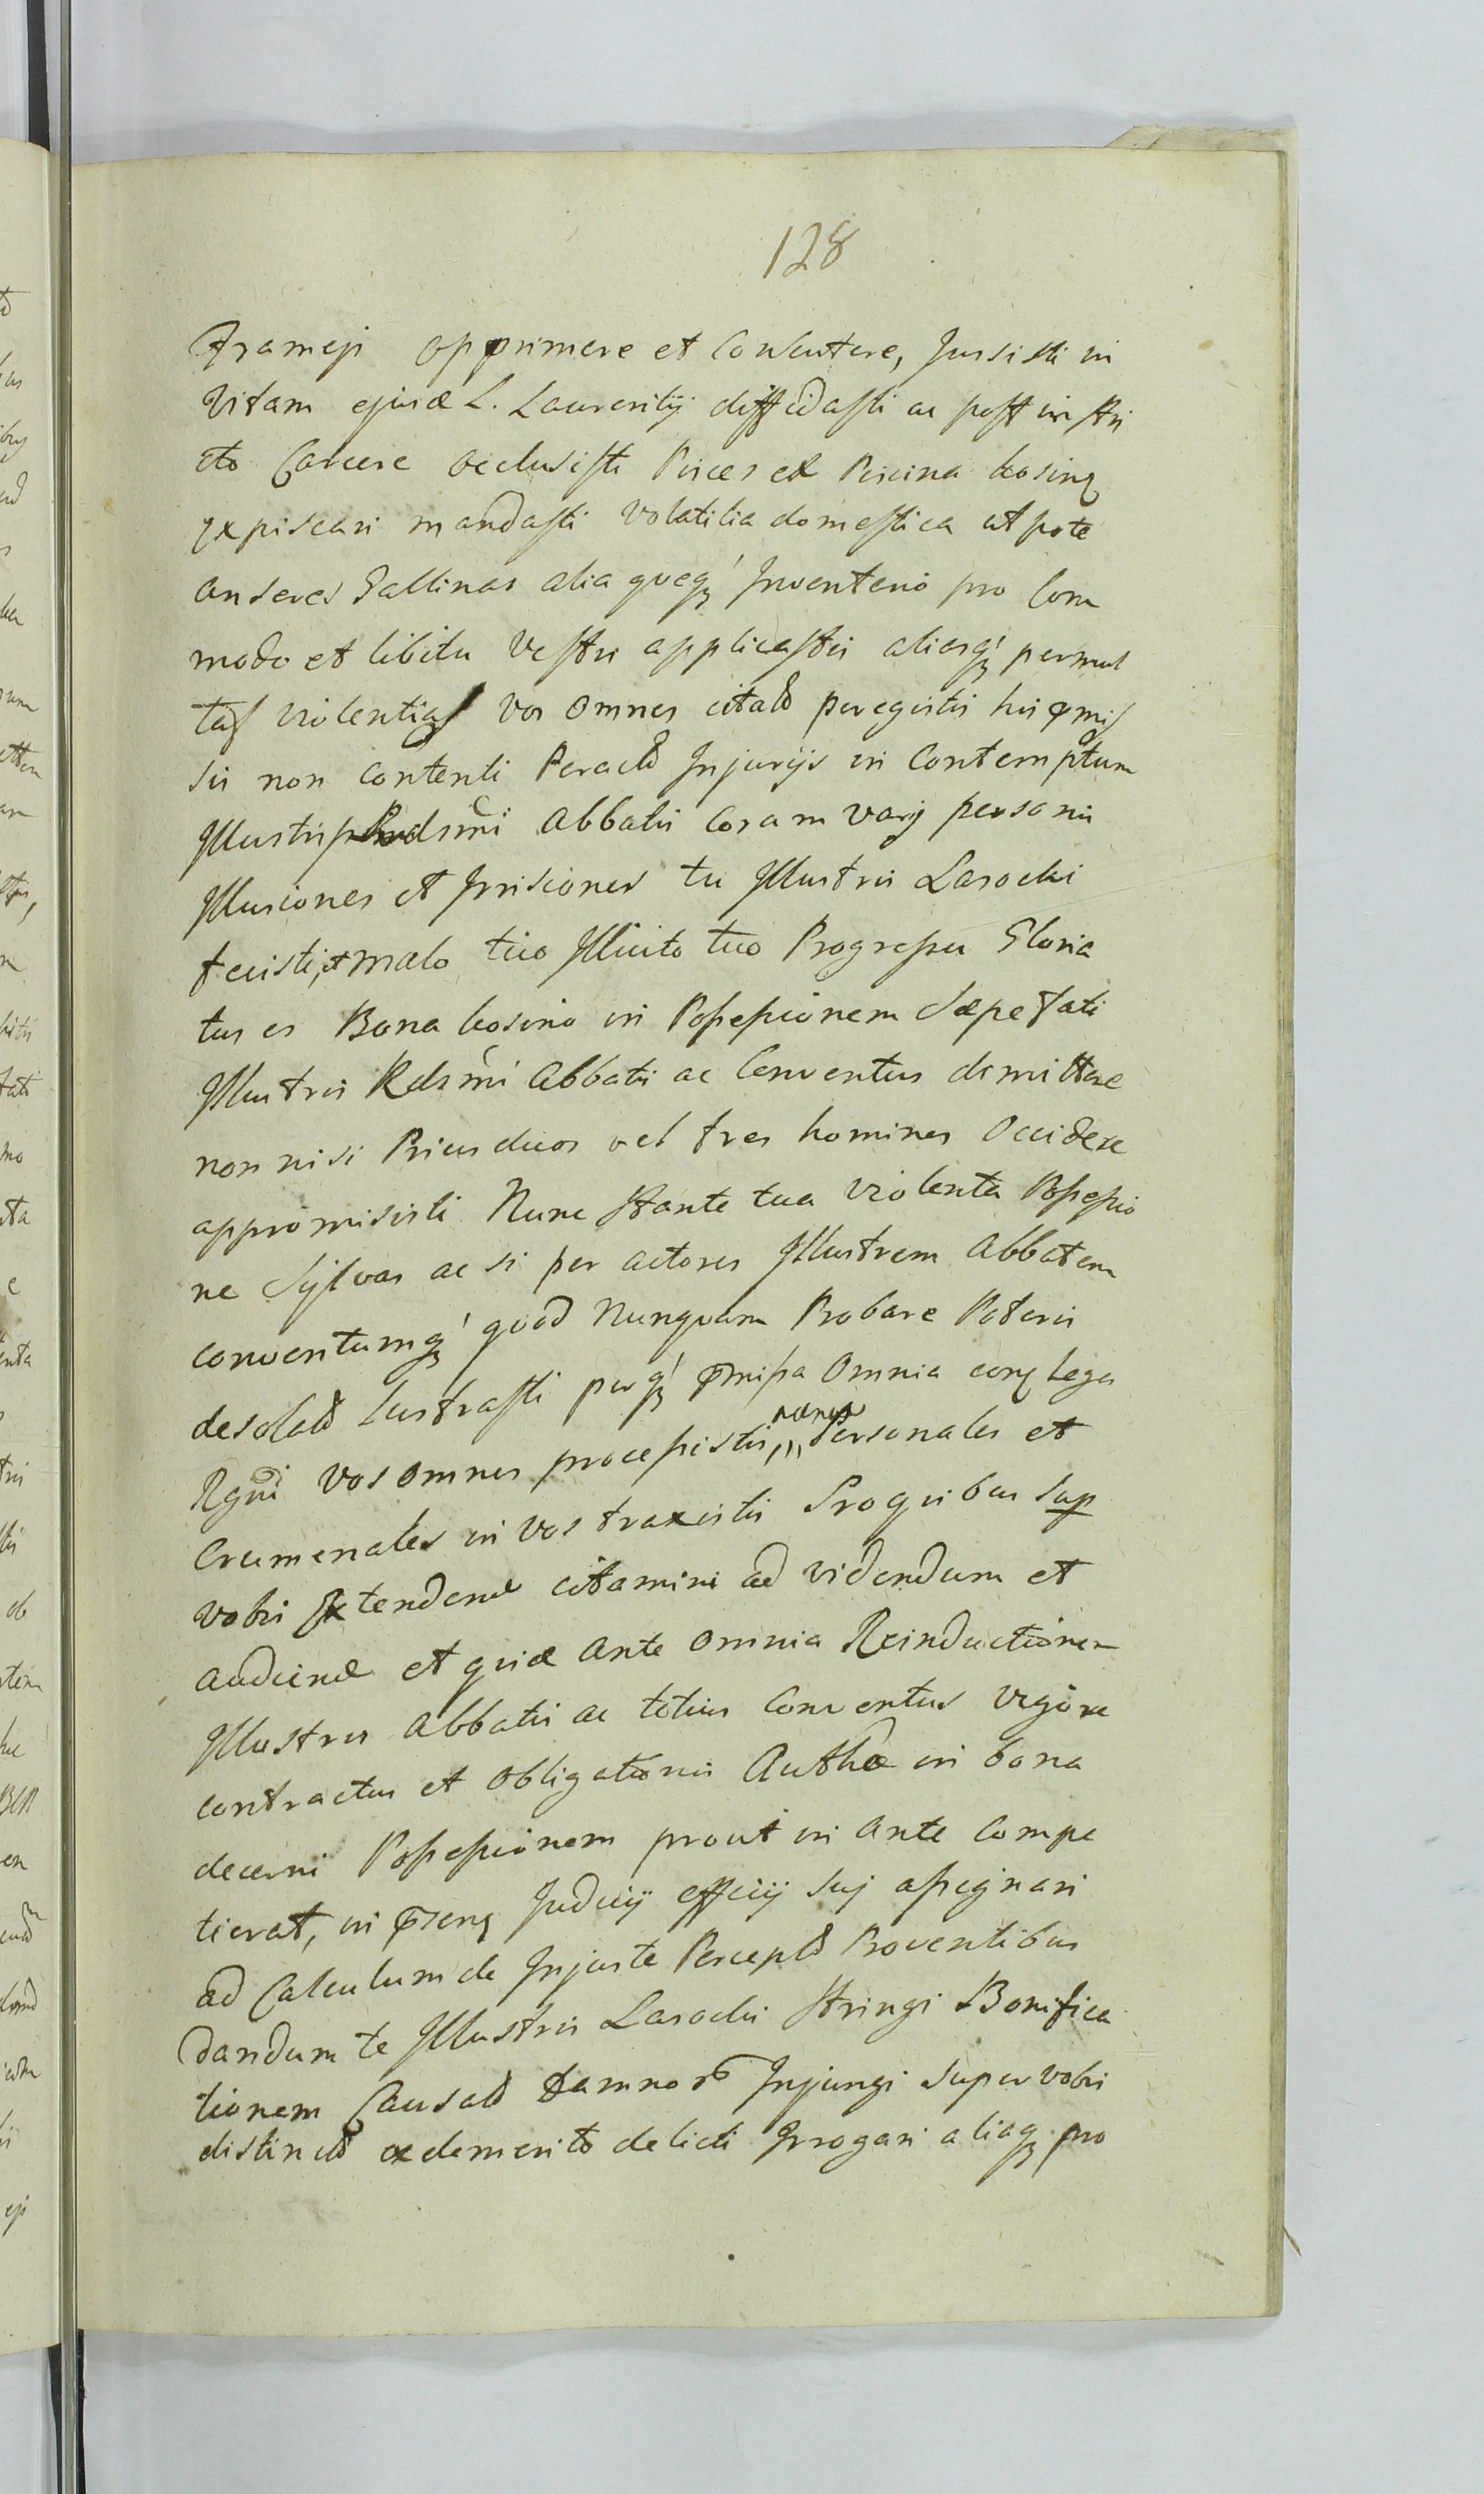 128
Frameji opprimere et Concutere, Jussisti in
Vitam ejusd L. Laurentij diffidasti ac post in stri
cto Carcere occlusisti Pisces ex Piscina kosinq
Expiscari mandasti Volatilia domestica utpote
anseres Gallinas aliaqveq́ Inventeno pro Com
modo et libitu Vestri applicastis aliasq́ permul
tas violentias vos omnes citatd peregistis his pmis
sis non contenti Peractd Injurijs in Contemptum
Illustris Rdsmi Abbatis Coram varij personis
Illusiones et Irrisiones tu Illustris Lasocki
fecisti, et malo tuo Illicito tuo Progressu Gloria
tus es Bona kosino in Possessionem Saepefati
Illustris Rdsmi Abbatis ac Conventus dimittere
non nisi Prius duos vel tres homines Occidere
appromisisti Nunc stante tua violenta Possessio
ne Sylvas ac si per actores Illustrem Abbatem
conventumq́ qvod Nunqvam Probare Poteris
desolatd lustrasti perq́ pmissa Omnia conq Leges
Rgni vos omnes processistis,,, paenas Personales et
Crumenales in vos traxistis Proqvibus sup
vobis Extendend citamini ad videndum et
audiend et qvid ante omnia Reinductionem
Illustris Abbatis ac totius Conventus vigore
contractus et obligationis Autha in bona
decerni Possessionem prout in ante Compe
tierat, in psenq Judicij officij sui assignari
ad Calculum de Injuste Perceptd Proventibus
dandum te Illustris Lasocki stringi Bonifica
tionem Causatd Damnor Injungi super vobis
distinctd ex demerito delicti Irrogari aliaq pro